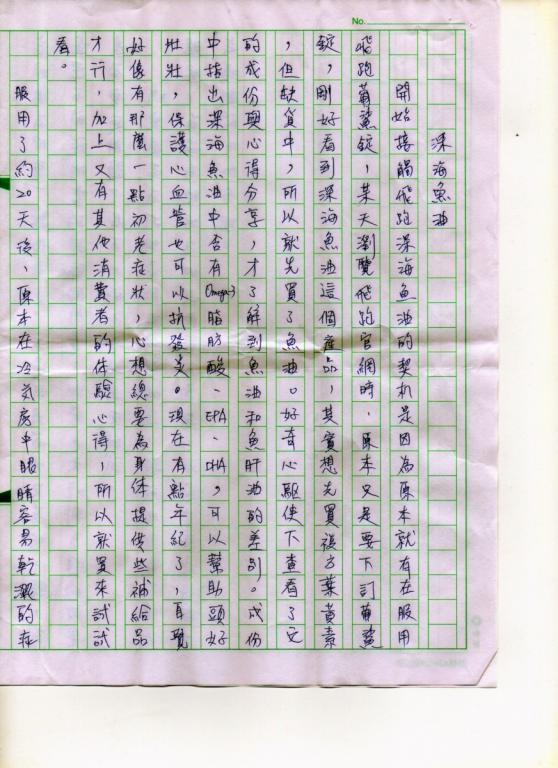 No.
深海魚油
開始接觸飛跑深海魚油的契机是因為原本就有在服用
飛跑葡鯊錠，某天瀏覽飛跑官網時，原本又是要下訂葡鯊
錠，剛好看到深海魚油這個產品，其實想先買複方葉黃素
，但缺貨中，所以就先買了魚油。好奇心驅使下查看了它
的成份與心得分享，才了解到魚油和魚肝油的差別。成份
中指出深海魚油中含有Omega-3脂肪酸、EPA、DHA，可以幫助頭好
壯壯，保護心血管也可以抗發炎。現在有點年紀了，自覺
好像有那麼一點初老症狀，心想總要為身体提供些補給品
才行，加上又有其他消費者的体驗心得，所以就買來試試
看。
服用了約20天後，原本在冷氣房中眼睛容易乾澀的症